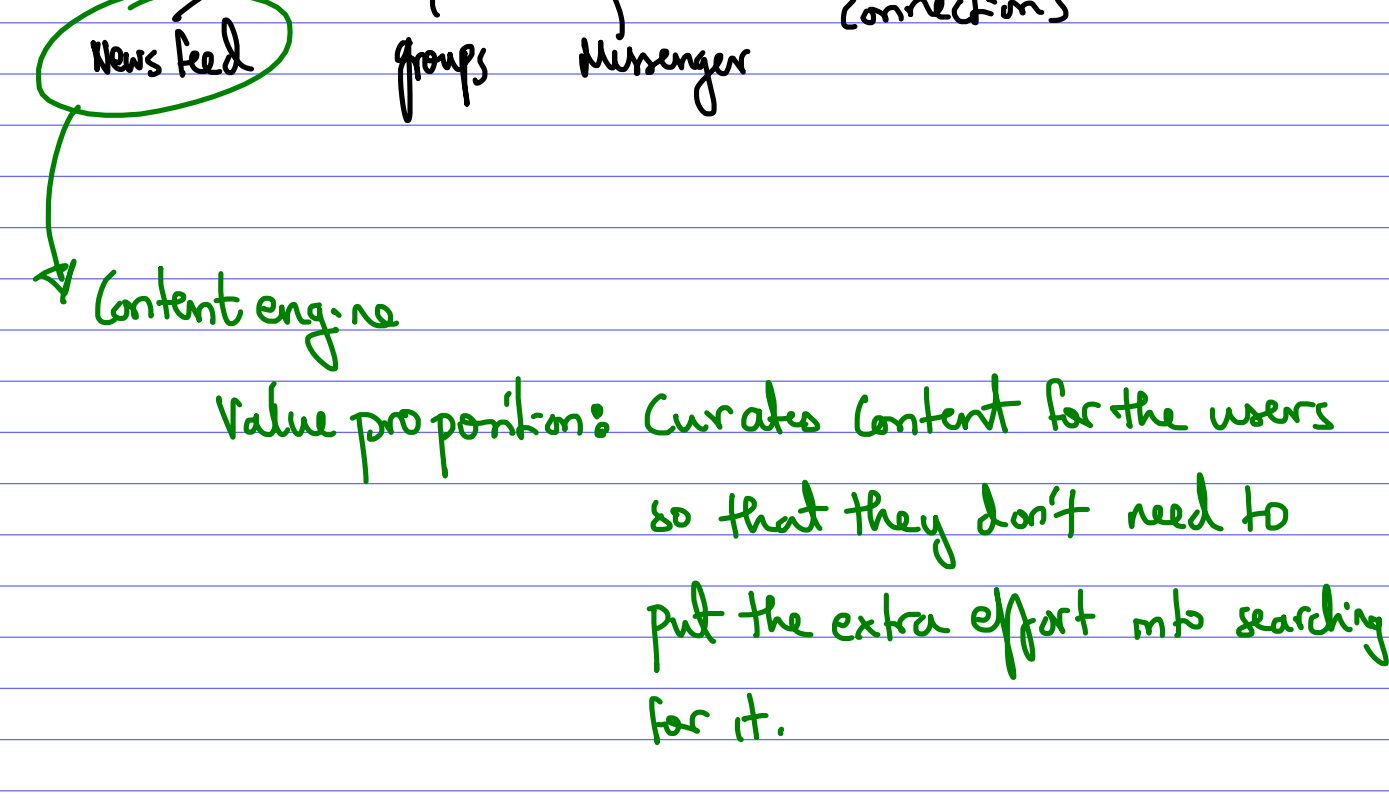 Connections
News feed groups Messenger
Content engine
Value proposition: Curates Content for the users
so that they don't need to
put the extra effort into searching
for it.